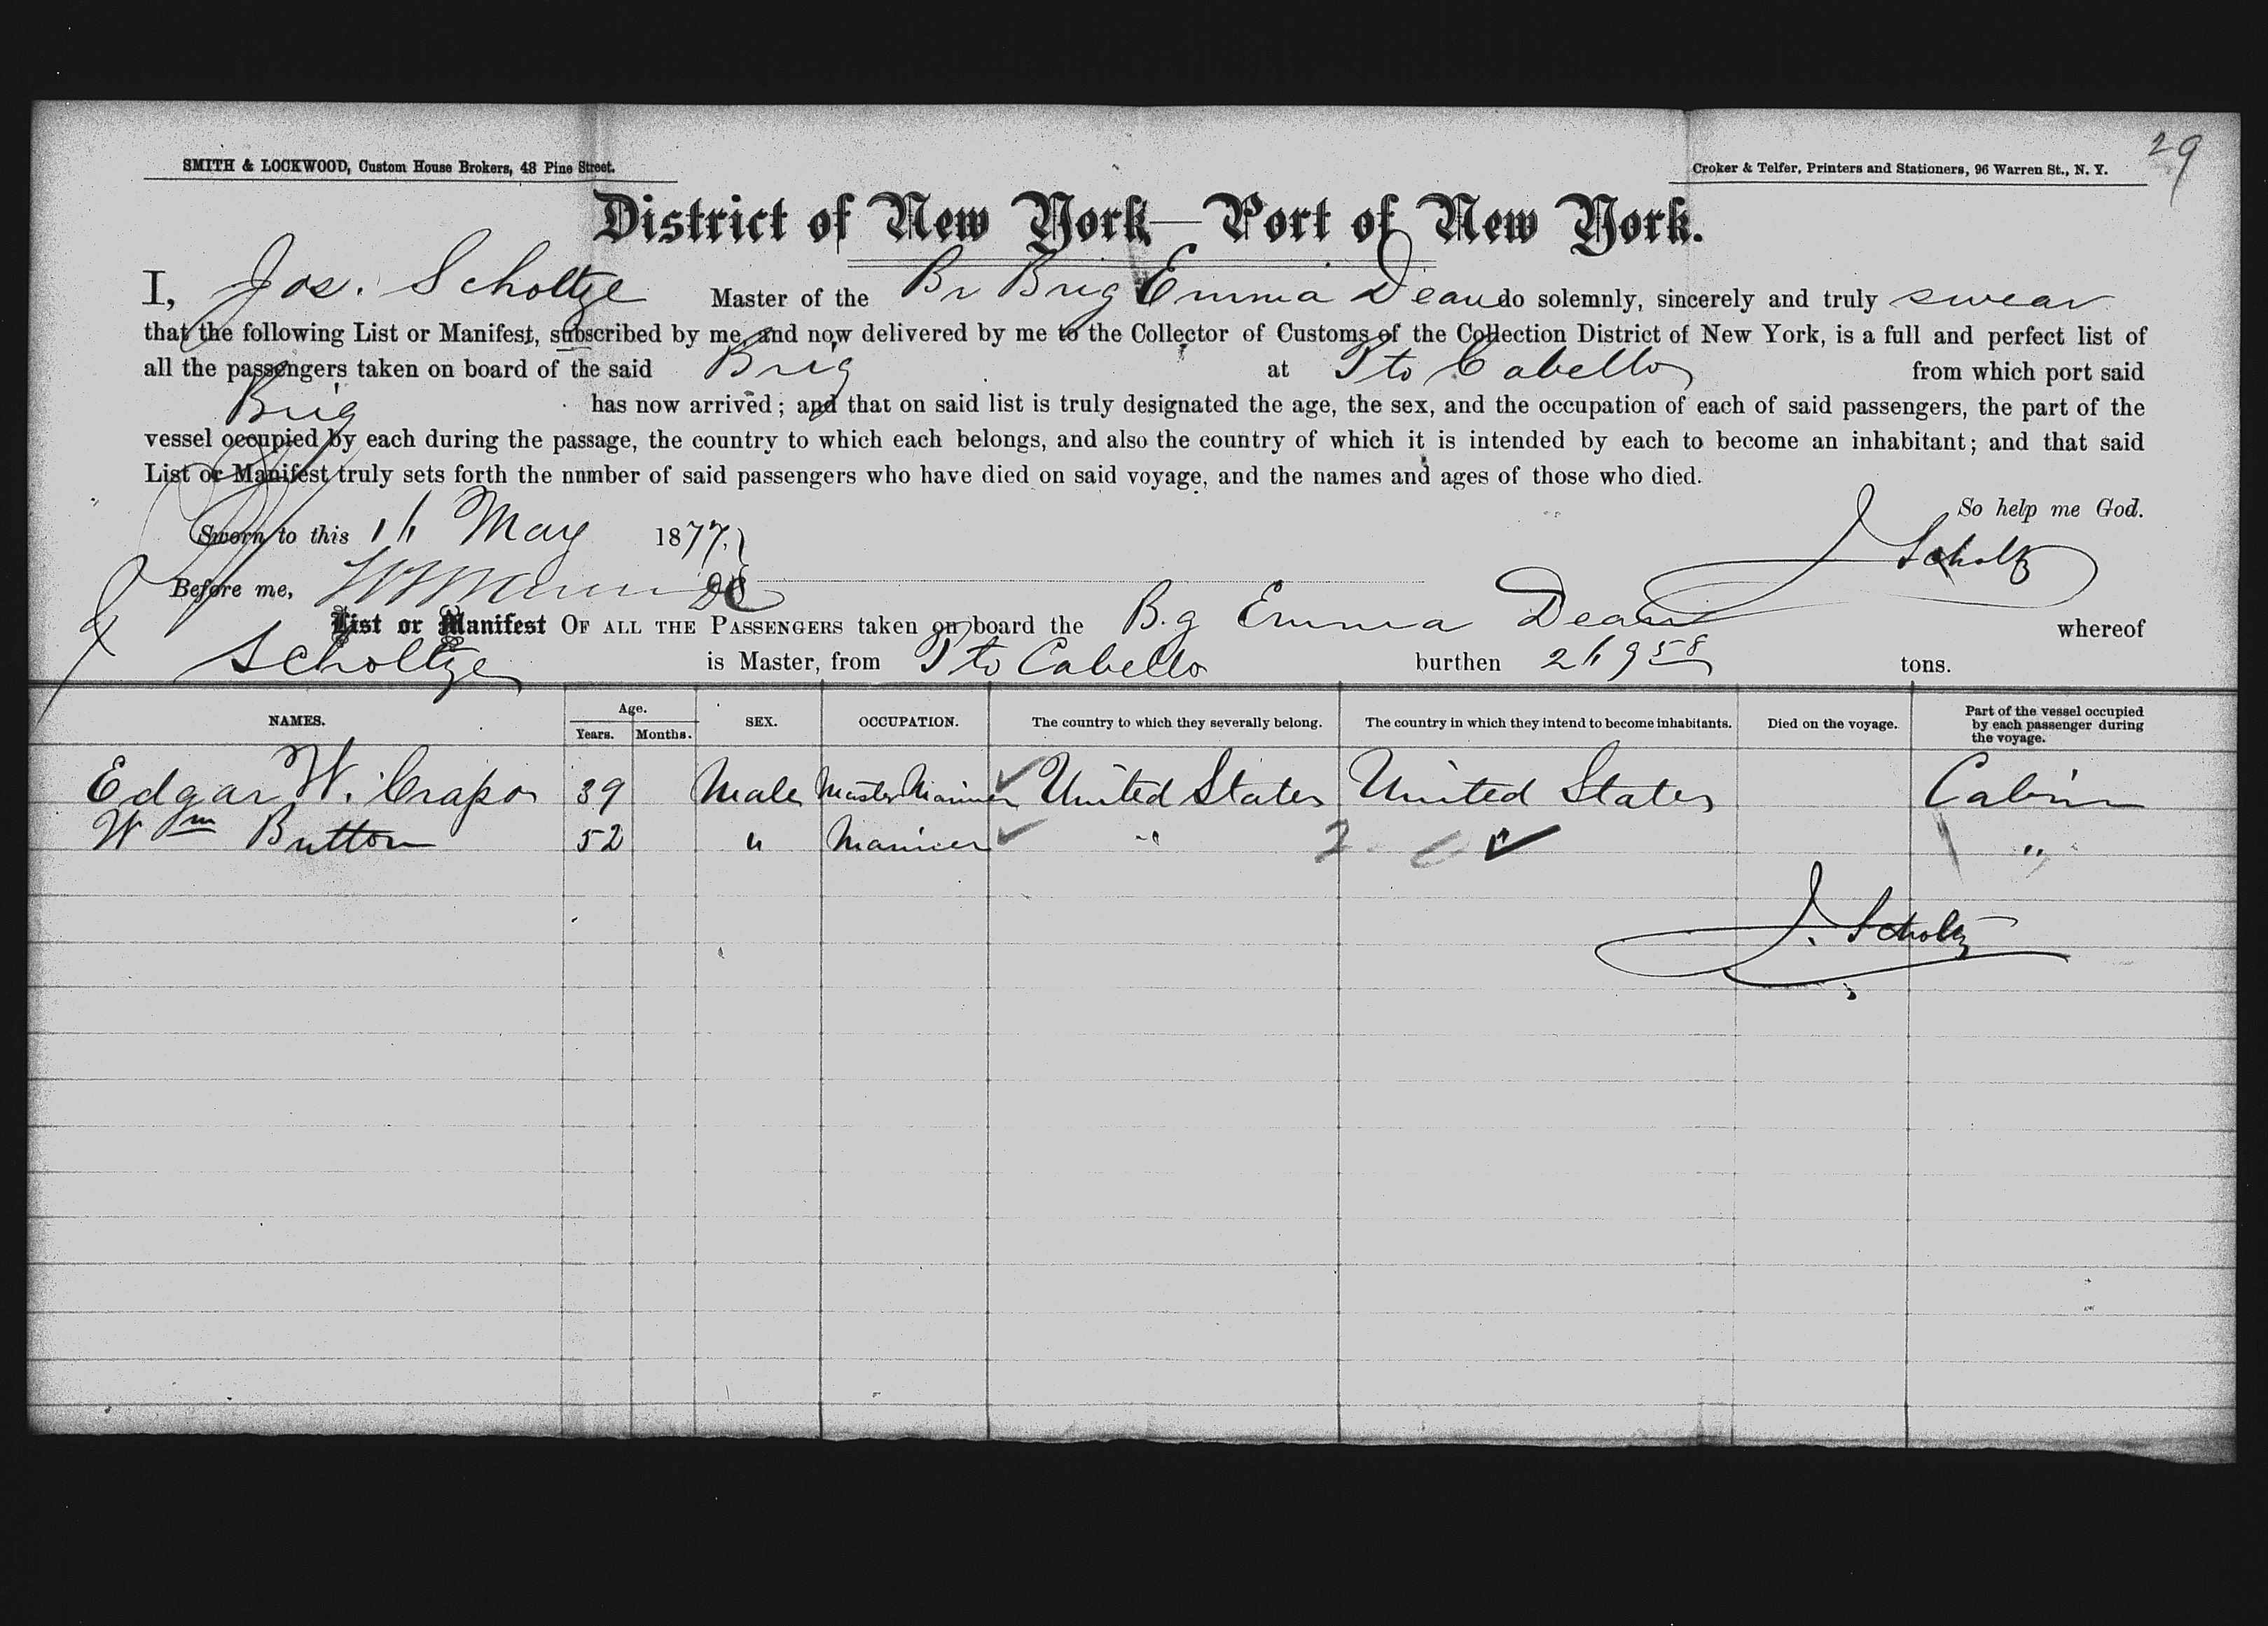 29
SMITH & LOCKWOOD, Custom House Brokers, 48 Pine Street.
Croker & Telfer, Printers and Stationers, 96 Warren St., N. Y.
District of New York—Port of New York.
I, Jos. Scholtze Master of the Br Brig Emma Dean do solemnly, sincerely and truly swear
that the following List or Manifest, subscribed by me and now delivered by me to the Collector of Customs of the Collection District of New York, is a full and perfect list of
all the passengers taken on board of the said Brig at Pto Cabello from which port said
Brig has now arrived; and that on said list is truly designated the age, the sex, and the occupation of each of said passengers, the part of the
vessel occupied by each during the passage, the country to which each belongs, and also the country of which it is intended by each to become an inhabitant; and that said
List or Manifest truly sets forth the number of said passengers who have died on said voyage, and the names and ages of those who died.
So help me God.
Sworn to this May 1877.
J Scholtz
Before me,
List or Manifest OF ALL THE PASSENGERS taken on board the B.g Emma Dean whereof
J Scholtze is Master, from Pto Cabello burthen tons.
NAMES. Age. Years. Months. SEX. OCCUPATION. The country to which they severally belong. The country in which they intend to become inhabitants. Died on the voyage. Part of the vessel occupied by each passenger during the voyage.
Edgar W. Crapo 39 Male Master Mariner United States United States Cabin
Wm Button 52 " Mariner " "
J. Scholtz